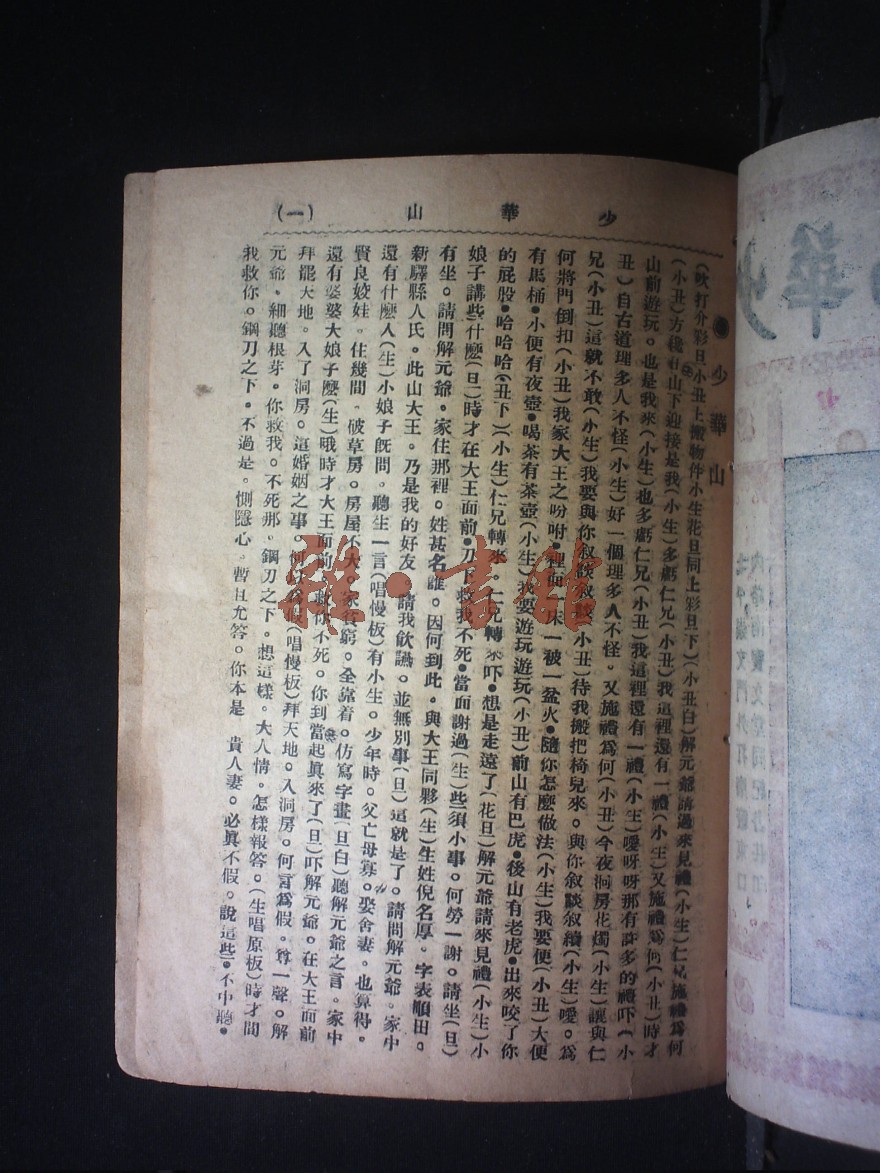 少華山 (一)
●少華山
(吹打介彩旦小丑上搬物件小生花旦同上彩旦下)(小丑白)解元爺請過來見禮(小生)仁兄施禮爲何
(小丑)方纔在山下迎接是我(小生)多虧仁兄(小丑)我這裡還有一禮(小生)又施禮爲何(小丑)時才
山前遊玩。也是我來(小生)也多虧仁兄(小丑)我這裡還有一禮(小生)噯呀呀那有許多的禮吓(小
丑)自古道理多人不怪(小生)好一個理多人不怪。又施禮爲何(小丑)今夜洞房花燭(小生)讓與仁
兄(小丑)這就不敢(小生)我要與你叙談叙談(小丑)待我搬把椅兒來。與你叙談叙續(小生)噯。爲
何將門倒扣(小丑)我家大王之吩咐●裡面一床一被一盆火●隨你怎麼做法(小生)我要便(小丑)大便
有馬桶●小便有夜壺●喝茶有茶壺(小生)我要遊玩遊玩(小丑)前山有巴虎●後山有老虎●出來咬了你
的屁股●哈哈哈(丑下)(小生)仁兄轉來●仁兄轉來吓●想是走遠了(花旦)解元爺請來見禮(小生)小
娘子講些什麼(旦)時才在大王面前●刀下救我不死●當面謝過(生)些須小事。何勞一謝。請坐(旦)
有坐。請問解元爺。家住那裡。姓甚名誰。因何到此。與大王同夥(生)生姓倪名厚。字表順田。
新驛縣人氏。此山大王。乃是我的好友。請我飲讌。並無別事(旦)這就是了。請問解元爺。家中
還有什麼人(生)小娘子旣問。聽生一言(唱慢板)有小生。少年時。父亡母寡。娶舍妻。也算得。
賢良姣娃。住幾間。破草房。房屋不大。家貧窮。全靠着。仿寫字畫(旦白)聽解元爺之言。家中
還有婆婆大娘子麼(生)哦時才大王面前。救你不死。你到當起眞來了(旦)吓解元爺。在大王面前
拜罷天地。入了洞房。這婚姻之事。何以爲假(唱慢板)拜天地。入洞房。何言爲假。尊一聲。解
元爺。細聽根芽。你救我。不死那。鋼刀之下。想這樣。大人情。怎樣報答。(生唱原板)時才間
我救你。鋼刀之下。不過是。惻隱心。暫且允答。你本是 貴人妻。必眞不假。說這些●不中聽●
雅·書館